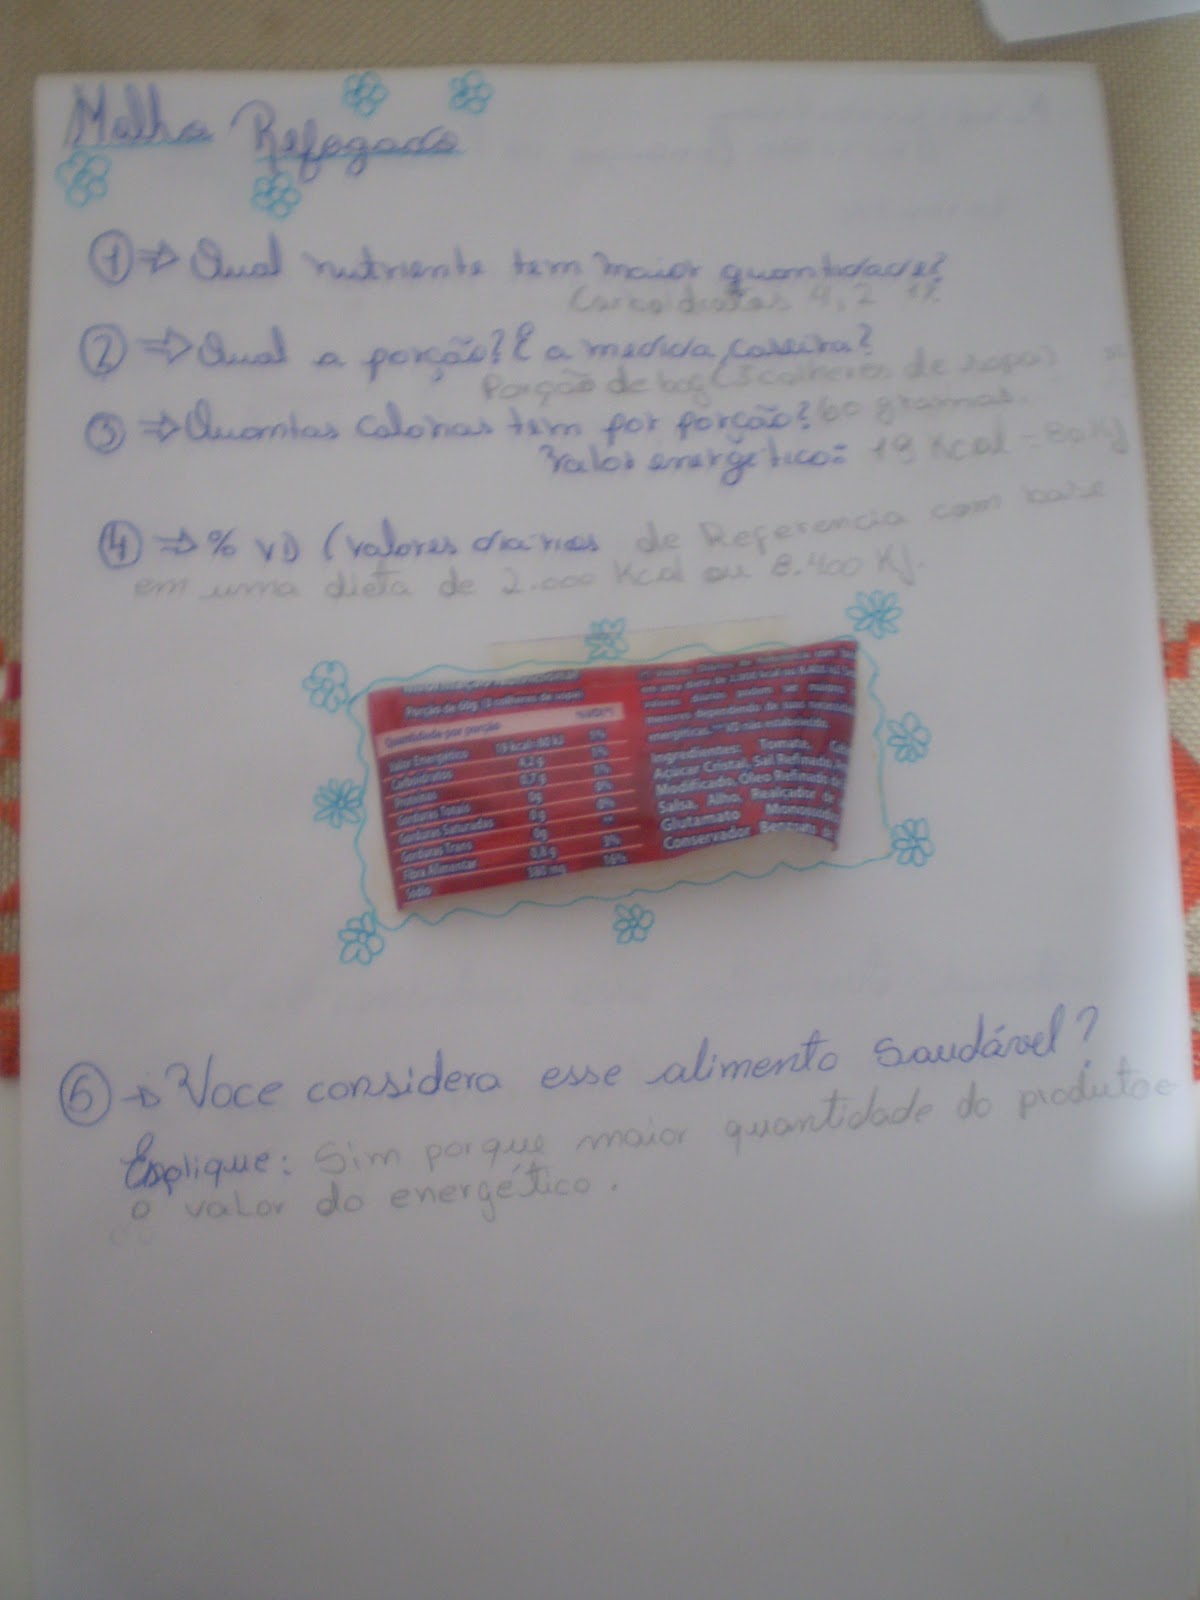 Molho Refogado
1 ⇒ Qual nutriente tem maior quantidade?
Carboidratos 4,2 1%
2 ⇒ Qual a porção? E a medida caseira?
Porção de 60g (3 colheres de sopa)
3 ⇒ Quantas calorias tem por porção? 60 gramas.
Valor energético= 19 Kcal = 80 KJ
4 ⇒ % VD (valores diários de Referencia com base
em uma dieta de 2.000 Kcal ou 8.400 KJ.
Porção de 60g (3 colheres de sopa)
Quantidade por porção %VD(*)
Valor Energético 19 kcal=80 kJ 1%
Carboidratos 4,2 g 1%
Proteínas 0,7 g 1%
Gorduras Totais 0g 0%
Gorduras Saturadas 0 g 0%
Gorduras Trans 0g **
Fibra Alimentar 0,8 g 3%
Sódio 380 mg 16%
em uma dieta de 2.000 kcal ou 8.400 kJ
valores diários podem ser maiores
menores dependendo de suas necessidades
energéticas. ** VD não estabelecido.
Ingredientes: Tomate,
Açúcar Cristal, Sal Refinado,
Modificado, Óleo Refinado de
Salsa, Alho, Realçador de
Glutamato Monossódico
Conservador Benzoato de
5 → Voce considera esse alimento saudável?
Explique: Sim porque maior quantidade do produto e
o valor do energético.